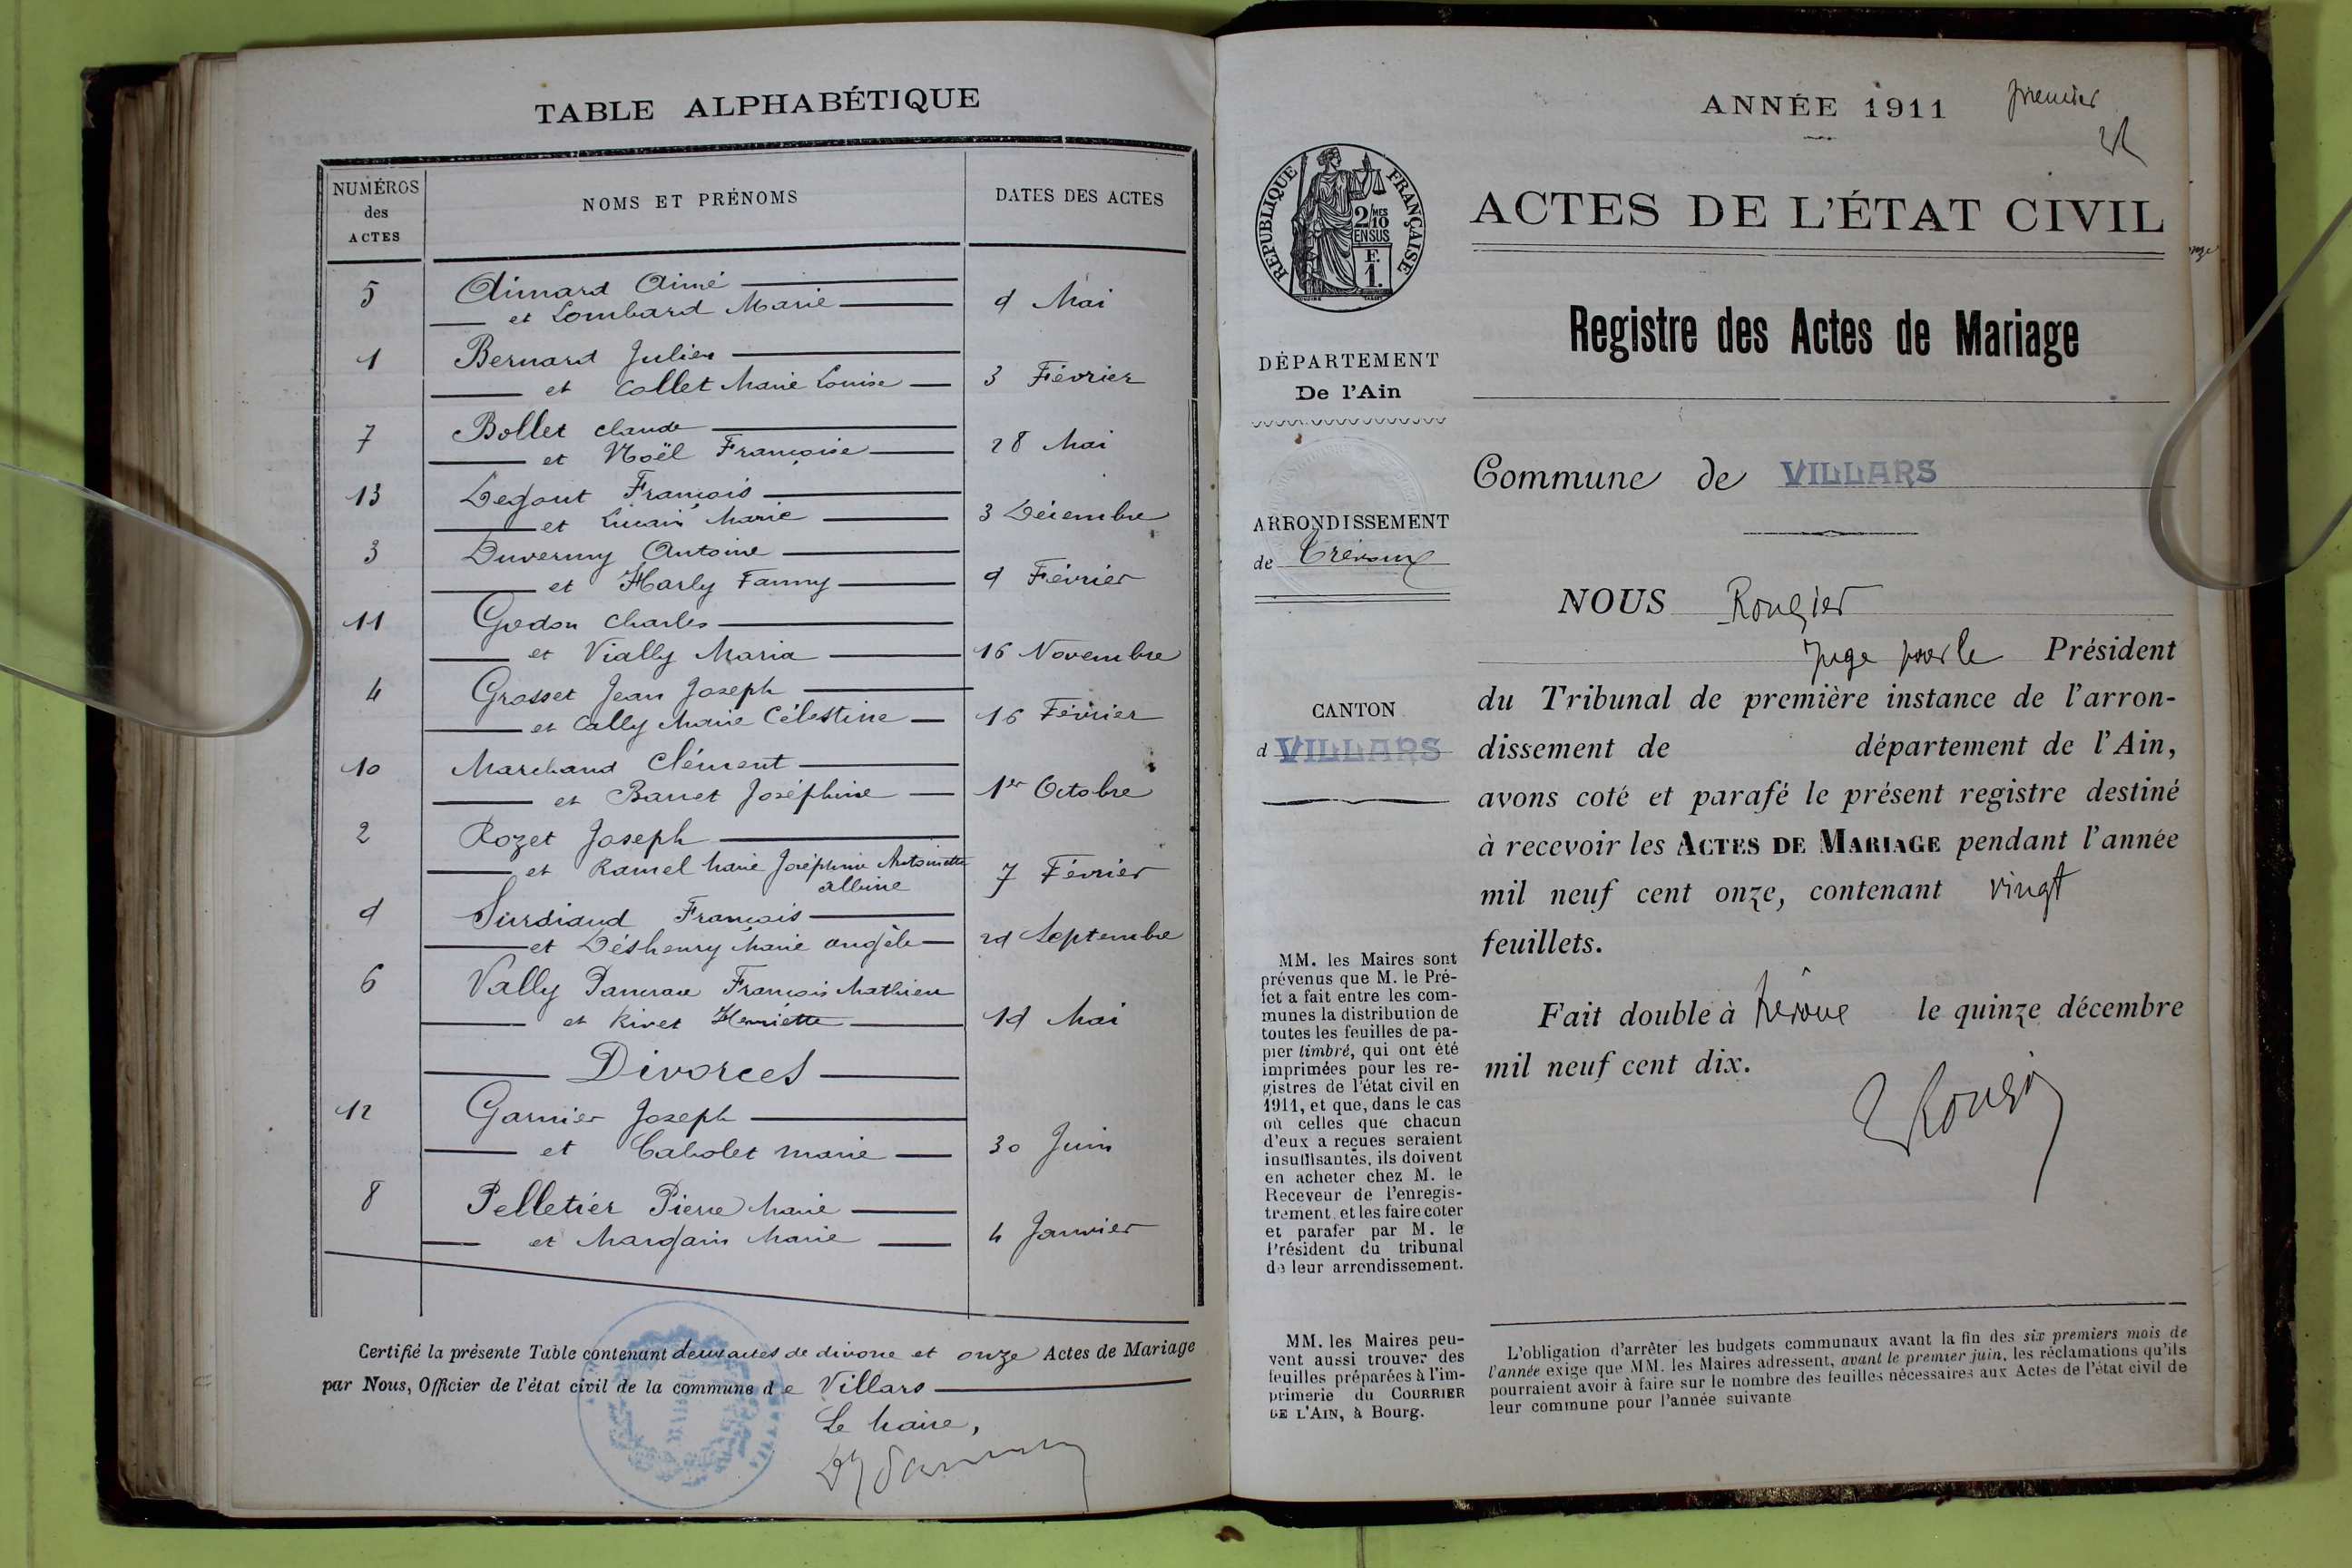 TABLE ALPHABÉTIQUE
NUMÉROS des ACTES
NOMS ET PRÉNOMS
DATES DES ACTES
5 Aimard Aimé
et Lombard Marie 9 Mai
1 Bernard Julien
et Collet Marie Louise 3 Février
7 Bollet Claude
et Noël Françoise 28 Mai
13 Degout François
et Marie 3 Décembre
3 Duverny Antoine
et Harly Fanny 9 Février
11 Godon Charles
et Vially Maria 16 Novembre
4 Grosset Jean Joseph
et Cally Marie Célestine 16 Février
10 Marchand Clément
et Barret Joséphine 1er Octobre
2 Rozet Joseph
et Ramel Marie Joséphine Antoinette
albine 7 Février
9 Surdiaud François
et Déshenry Marie Angèle 29 Septembre
6 Vally Pancrace François Mathieu
et Rivet Henriette 19 Mai
Divorces
12 Garnier Joseph
et Cabolet Marie 30 Juin
8 Pelletier Pierre Marie
et Margain Marie 4 Janvier
Certifié la présente Table contenant deux actes de divorce et onze Actes de Mariage
par Nous, Officier de l'état civil de la commune de Villars
Le Maire,
ANNÉE 1911
premier
RÉPUBLIQUE FRANÇAISE
2/10 MES
EN SUS
F.
1.
ACTES DE L'ÉTAT CIVIL
Registre des Actes de Mariage
DÉPARTEMENT
De l'Ain
ARRONDISSEMENT
de Trévoux
CANTON
d VILLARS
Commune de VILLARS
NOUS Rougier
Juge pour le Président
du Tribunal de première instance de l'arron-
dissement de département de l'Ain,
avons coté et parafé le présent registre destiné
à recevoir les ACTES DE MARIAGE pendant l'année
mil neuf cent onze, contenant vingt
feuillets.
Fait double à Trévoux le quinze décembre
mil neuf cent dix.
MM. les Maires sont
prévenus que M. le Pré-
fet a fait entre les com-
munes la distribution de
toutes les feuilles de pa-
pier timbré, qui ont été
imprimées pour les re-
gistres de l'état civil en
1911, et que, dans le cas
où celles que chacun
d'eux a reçues seraient
insuffisantes, ils doivent
en acheter chez M. le
Receveur de l'enregis-
trement, et les faire coter
et parafer par M. le
Président du tribunal
de leur arrondissement.
MM. les Maires peu-
vent aussi trouver des
feuilles préparées à l'im-
primerie du COURRIER
DE L'AIN, à Bourg.
L'obligation d'arrêter les budgets communaux avant la fin des six premiers mois de
l'année exige que MM. les Maires adressent, avant le premier juin, les réclamations qu'ils
pourraient avoir à faire sur le nombre des feuilles nécessaires aux Actes de l'état civil de
leur commune pour l'année suivante